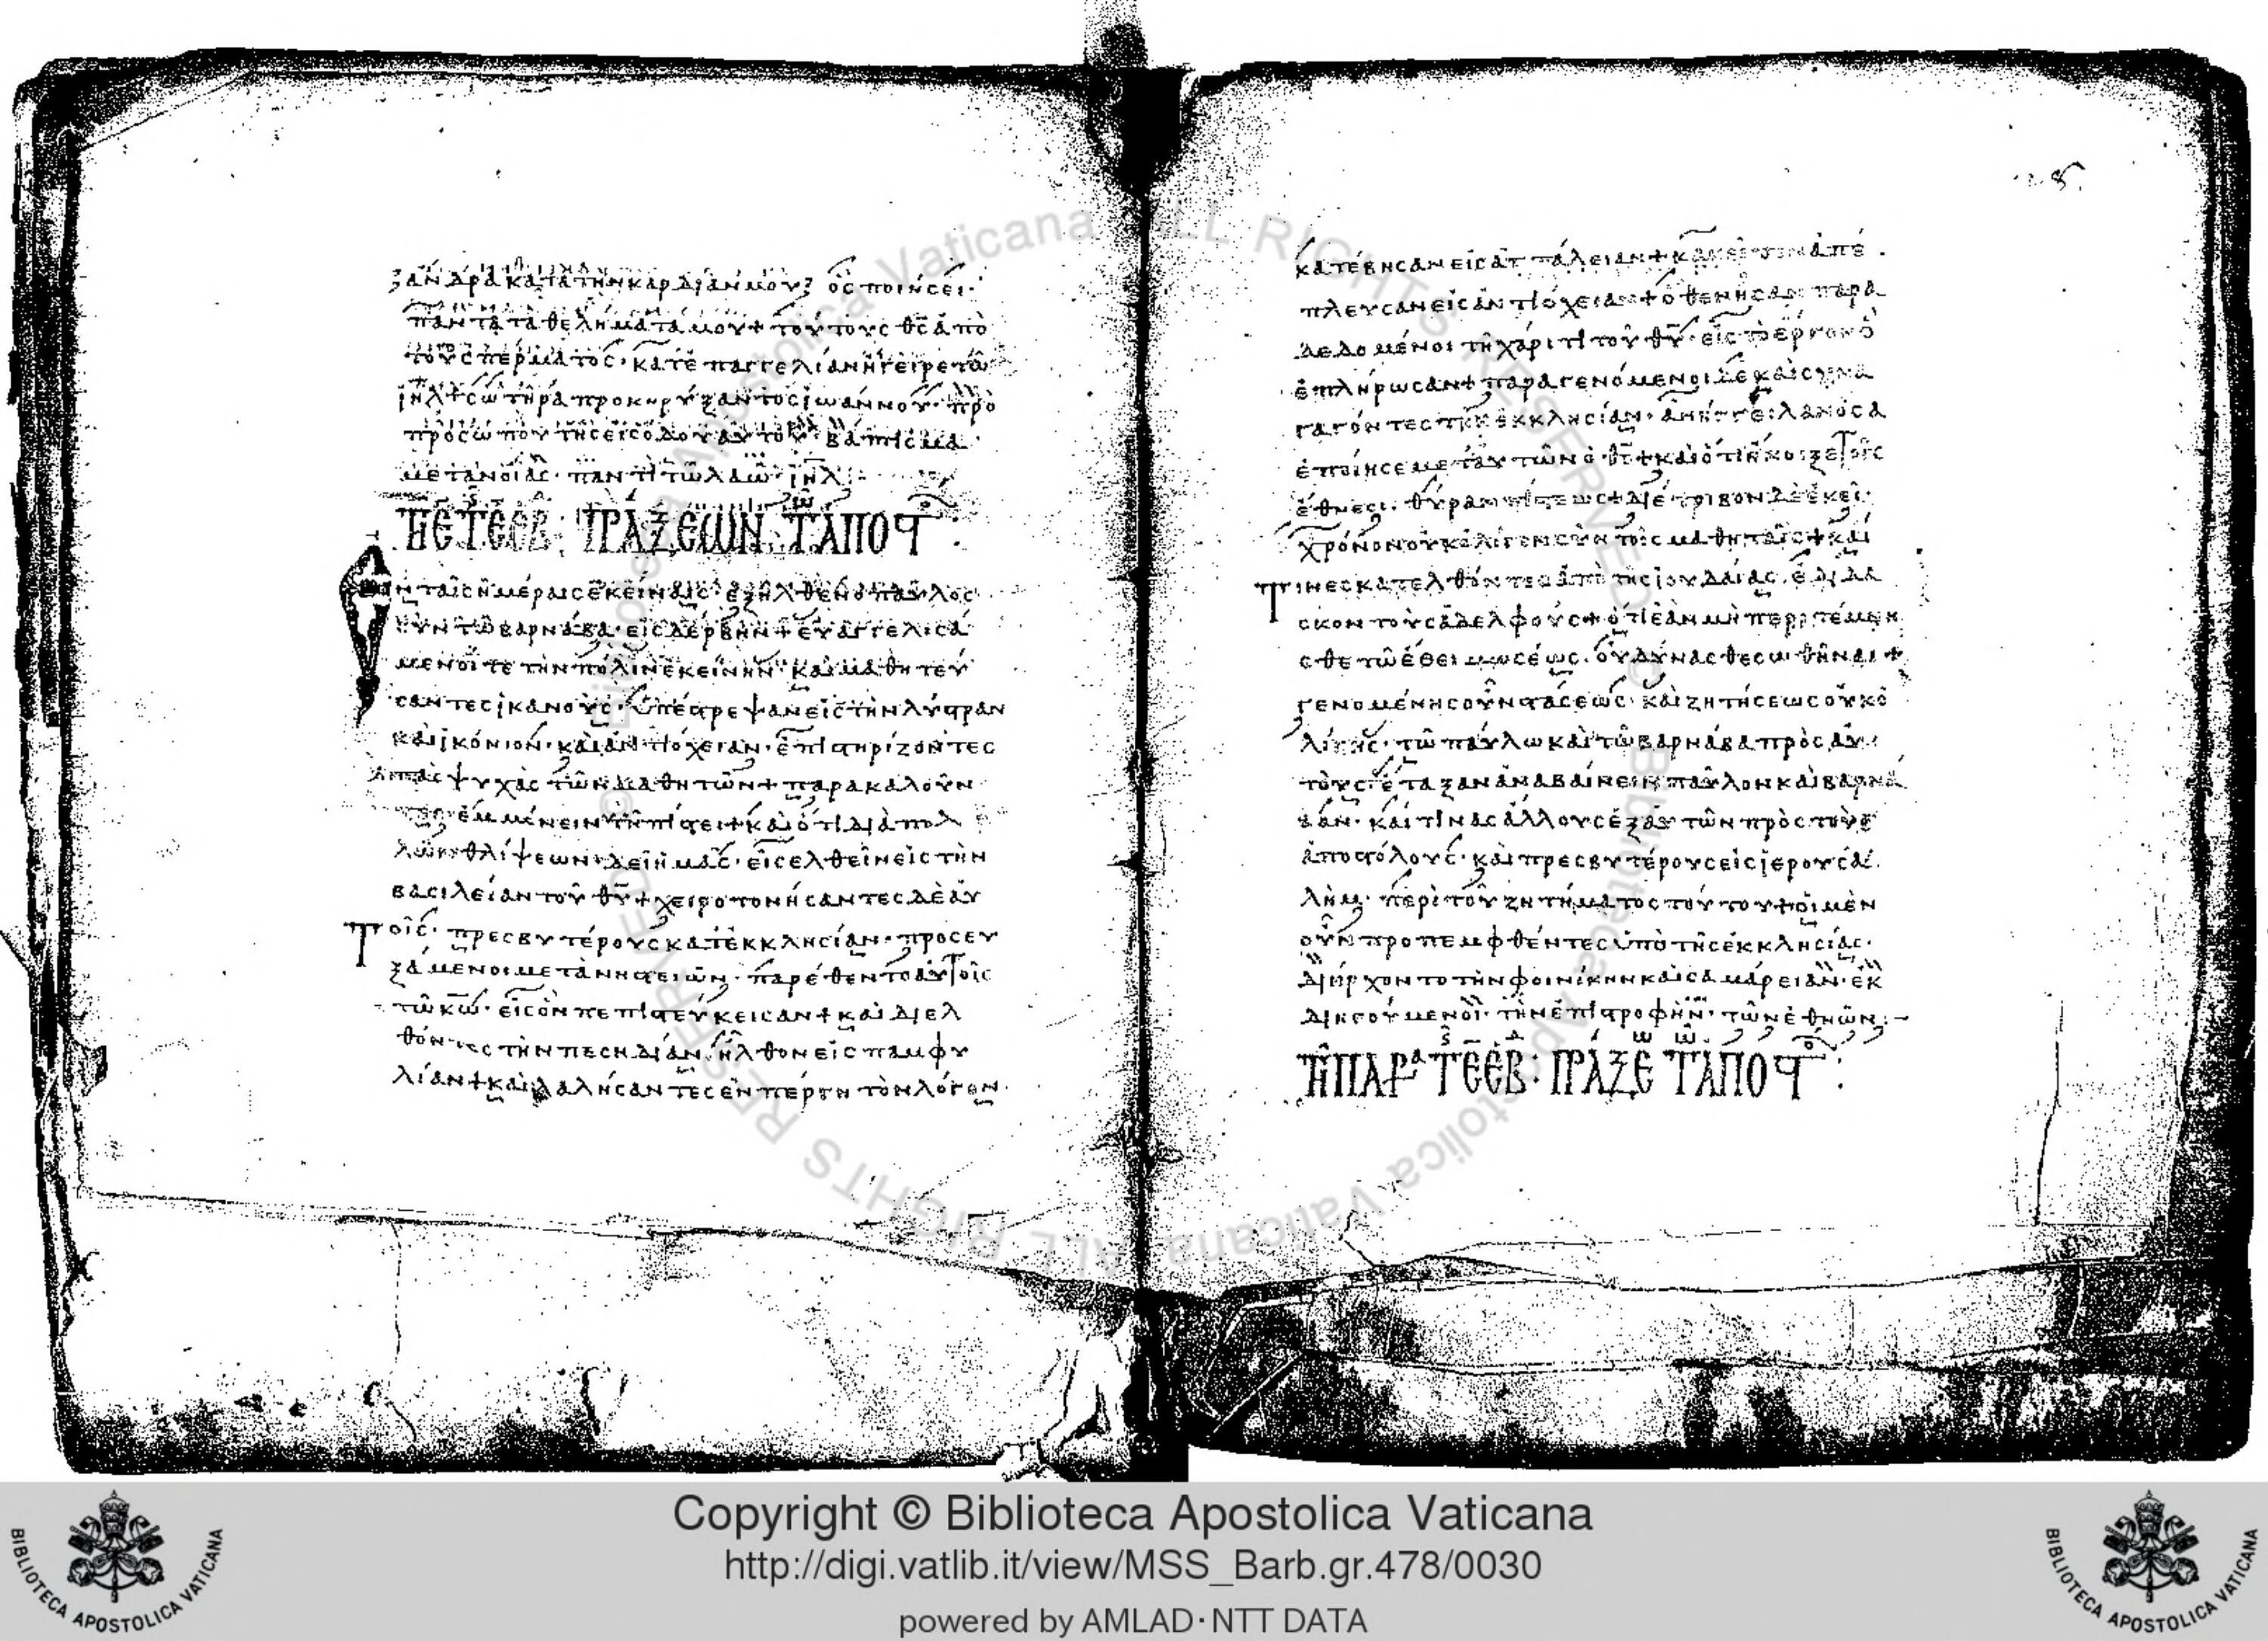 ἄνδρα κατὰ τὴν καρδίαν μου, ὃς ποιήσει
πάντα τὰ θελήματά μου + τούτου ὁ θς ἀπὸ
τοῦ σπέρματος· κατ' ἐπαγγελίαν ἤγειρε τῶ
ιηλ + σωτηρα προκηρύξαντος ἰωάννου· πρὸ
προσώπου τῆς εἰσόδου αὐτοῦ· βάπτισμα
μετανοίας· παντὶ τῶ λαῶ· ιηλ
ΠΡΑΞΕΩΝ Τ ΑΠΟϹΤ
ν ταῖς ἡμέραις ἐκείναις· ἐξῆλθεν ὁ παῦλος
σὺν τῶ βαρνάβα· εἰς δέρβην + εὐαγγελισά
μενοί τε τὴν πόλιν ἐκείνην· καὶ μαθητεύ
σαντες ἱκανούς· ὑπέστρεψαν εἰς τὴν λύστραν
καὶ ἰκόνιον· καὶ ἀντιόχειαν· ἐπιστηρίζοντες
τὰς ψυχὰς τῶν μαθητῶν + παρακαλοῦν
ἐμμένειν τῇ πίστει + καὶ ὅτι διὰ πολ
λῶν θλίψεων· δεῖ ἡμᾶς· εἰσελθεῖν εἰς τὴν
βασιλείαν τοῦ θυ + χειροτονήσαντες δὲ αὐ
τοῖς· πρεσβυτέρους κατ' ἐκκλησίαν· προσευ
ξάμενοι μετὰ νηστειῶν· παρέθεντο αὐτοῖς
τῶ κω· εἰς ὃν πεπιστεύκεισαν + καὶ διελ
θόντες τὴν πεσηδίαν· ἦλθον εἰς παμφυ
λίαν + καὶ λαλήσαντες ἐν πέργη τὸν λόγον·
κατέβησαν εἰς ἀτ τάλειαν + κἀκεῖθεν ἀπέ
πλευσαν εἰς ἀντιόχειαν + ὅθεν ἦσαν παρα
δεδομένοι τῇ χάριτι τοῦ θυ· εἰς τὸ ἔργον ὃ
ἐπλήρωσαν + παραγενόμενοι δὲ καὶ συνα
γαγόντες τὴν ἐκκλησίαν· ἀνήγγειλαν ὅσα
ἐποίησε μετ' αὐτῶν ὁ θς + καὶ ὅτι ἤνοιξε τοῖς
ἔθνεσι· θύραν πίστεως + διέτριβον δὲ ἐκεῖ
χρόνον οὐκ ὀλίγον σὺν τοῖς μαθηταῖς + καί
τινες κατελθόντες ἀπὸ τῆς ἰουδαίας· ἐδίδα
σκον τοὺς ἀδελφούς + ὅτι ἐὰν μὴ περιτέμνη
σθε τῶ ἔθει μωσέως· οὐ δύνασθε σωθῆναι +
γενομένης οὖν στάσεως· καὶ ζητήσεως οὐκ ὀ
λίγης· τῶ παύλω καὶ τῶ βαρνάβα πρὸς αὐ
τούς· ἔταξαν ἀναβαίνειν παῦλον καὶ βαρνά
βαν· καί τινας ἄλλους ἐξ αὐτῶν πρὸς τοὺς
ἀποστόλους· καὶ πρεσβυτέρους εἰς ἱερουσα
λήμ· περὶ τοῦ ζητήματος τούτου + οἱ μὲν
οὖν προπεμφθέντες ὑπὸ τῆς ἐκκλησίας·
διήρχοντο τὴν φοινίκην καὶ σαμάρειαν· ἐκ
διηγούμενοι· τὴν ἐπιστροφὴν· τῶν ἐθνῶν:
ΤΗ ΠΑΡΑ ΠΡΑΞΕ Τ ΑΠΟϹΤ
Copyright © Biblioteca Apostolica Vaticana
http://digi.vatlib.it/view/MSS_Barb.gr.478/0030
powered by AMLAD·NTT DATA
BIBLIOTECA APOSTOLICA VATICANA
BIBLIOTECA APOSTOLICA VATICANA